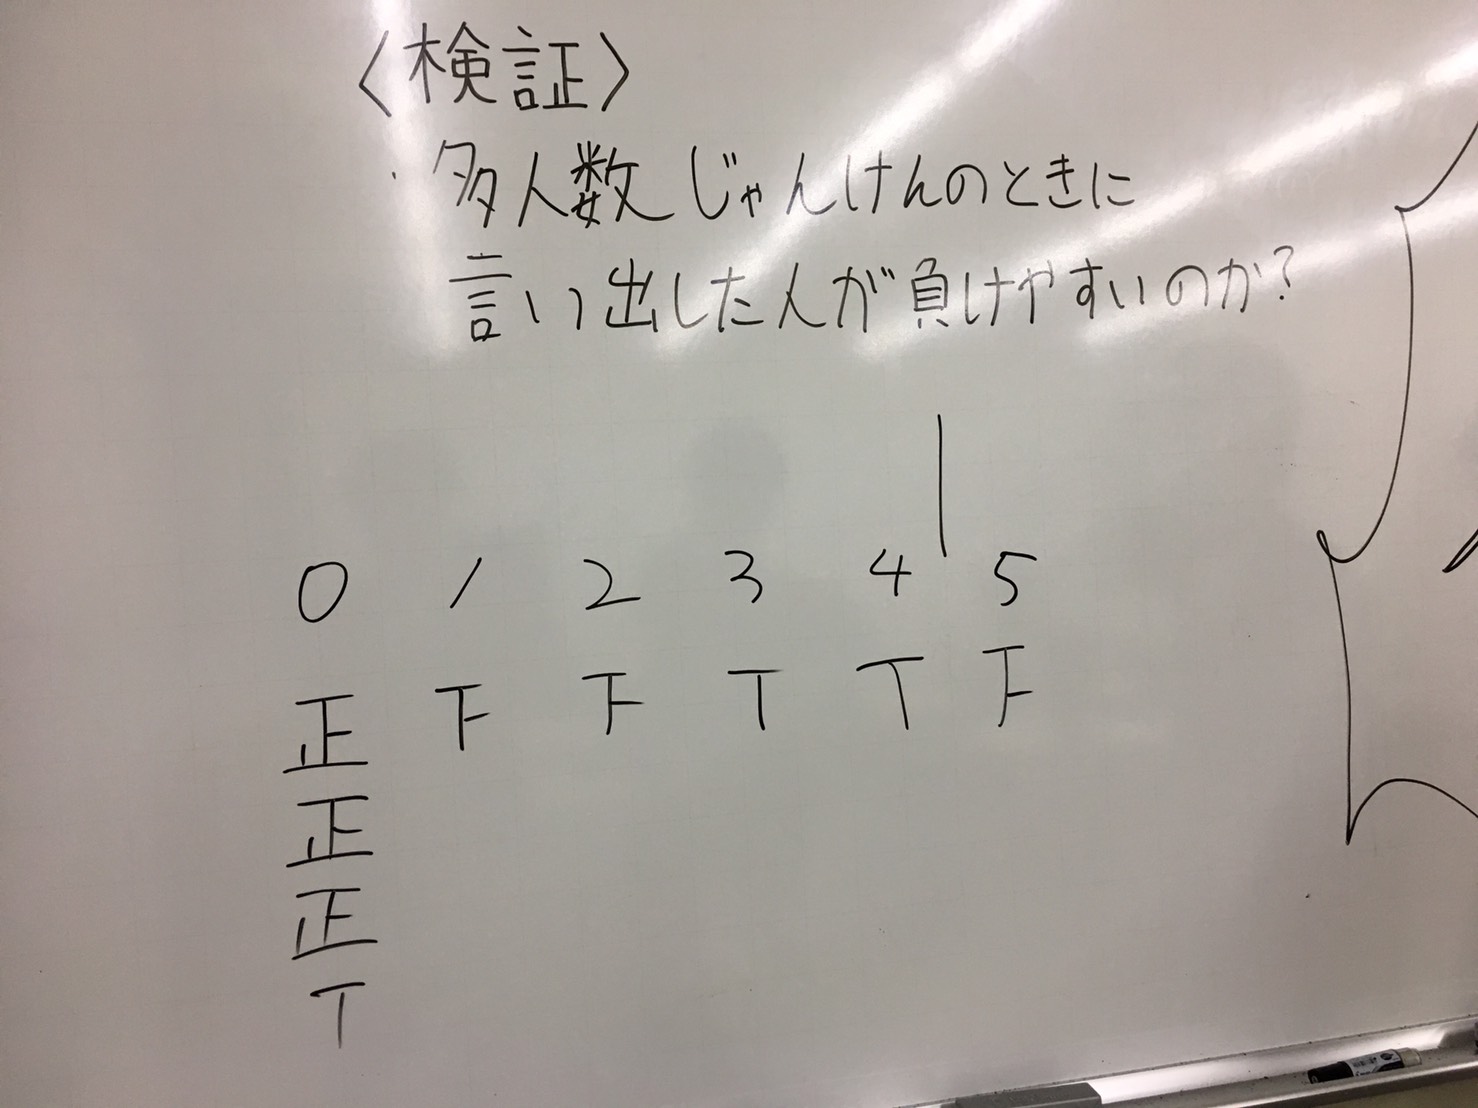 〈検証〉
・多人数じゃんけんのときに
言い出した人が負けやすいのか?
0 1 2 3 4 5
正 下 下 T T 下
正
正
T